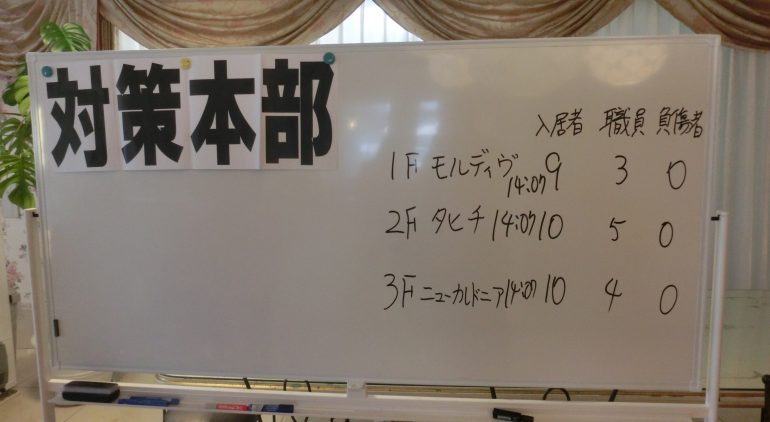 対策本部
入居者 職員 負傷者
1F モルディヴ 14:07 9 3 0
2F タヒチ 14:07 10 5 0
3F ニューカルドニア 14:07 10 4 0